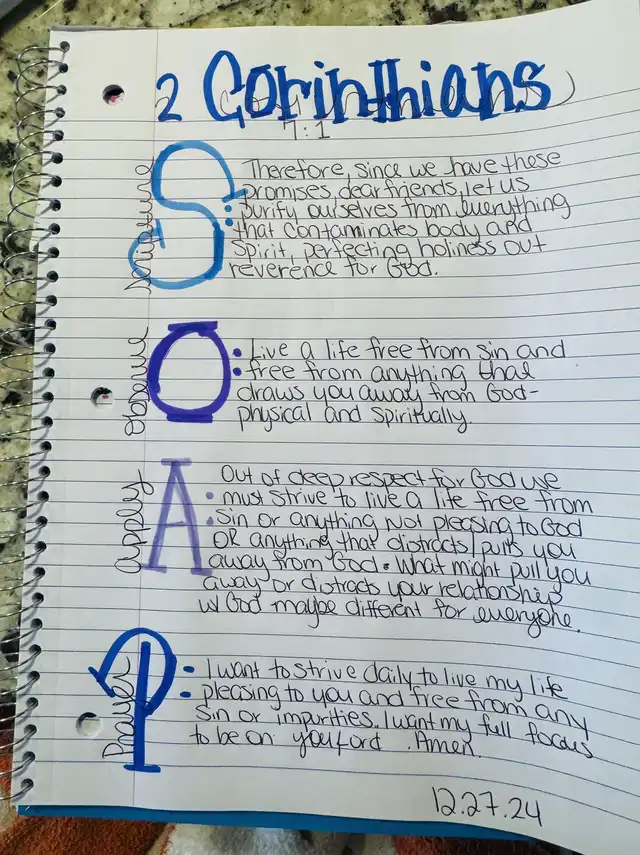 2 Corinthians
7:1
Scripture
S: Therefore, since we have these
promises, dear friends, let us
purify ourselves from everything
that contaminates body and
spirit, perfecting holiness out
reverence for God.
Observe
O: Live a life free from sin and
free from anything that
draws you away from God-
physical and spiritually.
Apply
A: Out of deep respect for God we
must strive to live a life free from
sin or anything not pleasing to God
OR anything that distracts/pulls you
away from God. What might pull you
away or distracts your relationship
w/ God maybe different for everyone.
Prayer
P: I want to strive daily to live my life
pleasing to you and free from any
sin or impurities. I want my full focus
to be on you Lord. Amen.
12.27.24